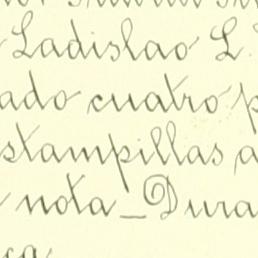 Ladislao L.
ado cuatro p
stampillas a
nota _ Dura